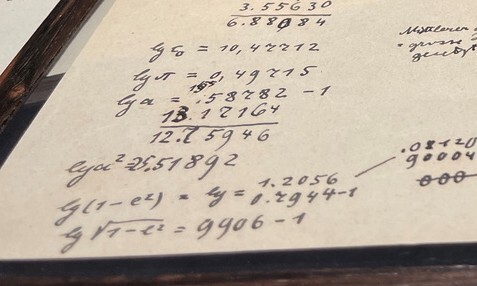 3.55630
6.88084
lg 5 = 10,47712
lg π = 0,49715
lg a = .58782 - 1
13.17164
12.75946
lg a² = 25.51892
lg(1-e²) = lg = 1.2056
0.7944-1
lg √1-e² = 9906 - 1
.08120
90004
000